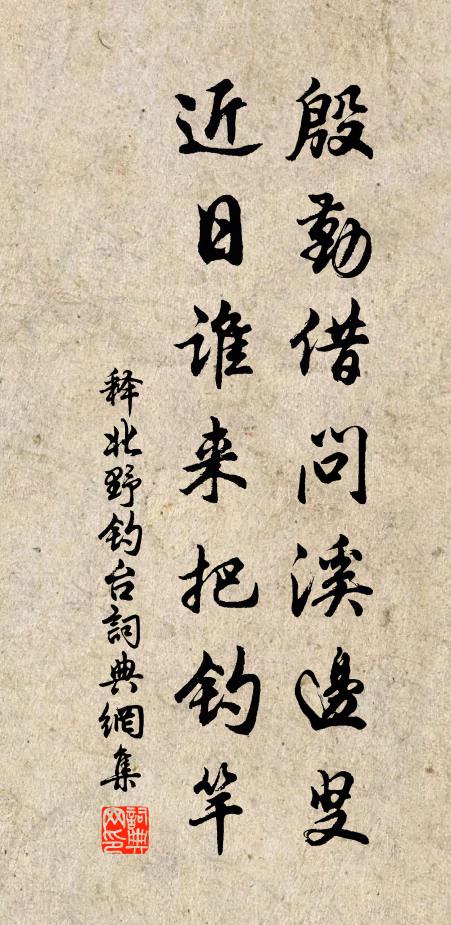 殷勤借问溪邊叟
近日谁来把钓竿
释北野钓台詞典網集
詞典網印